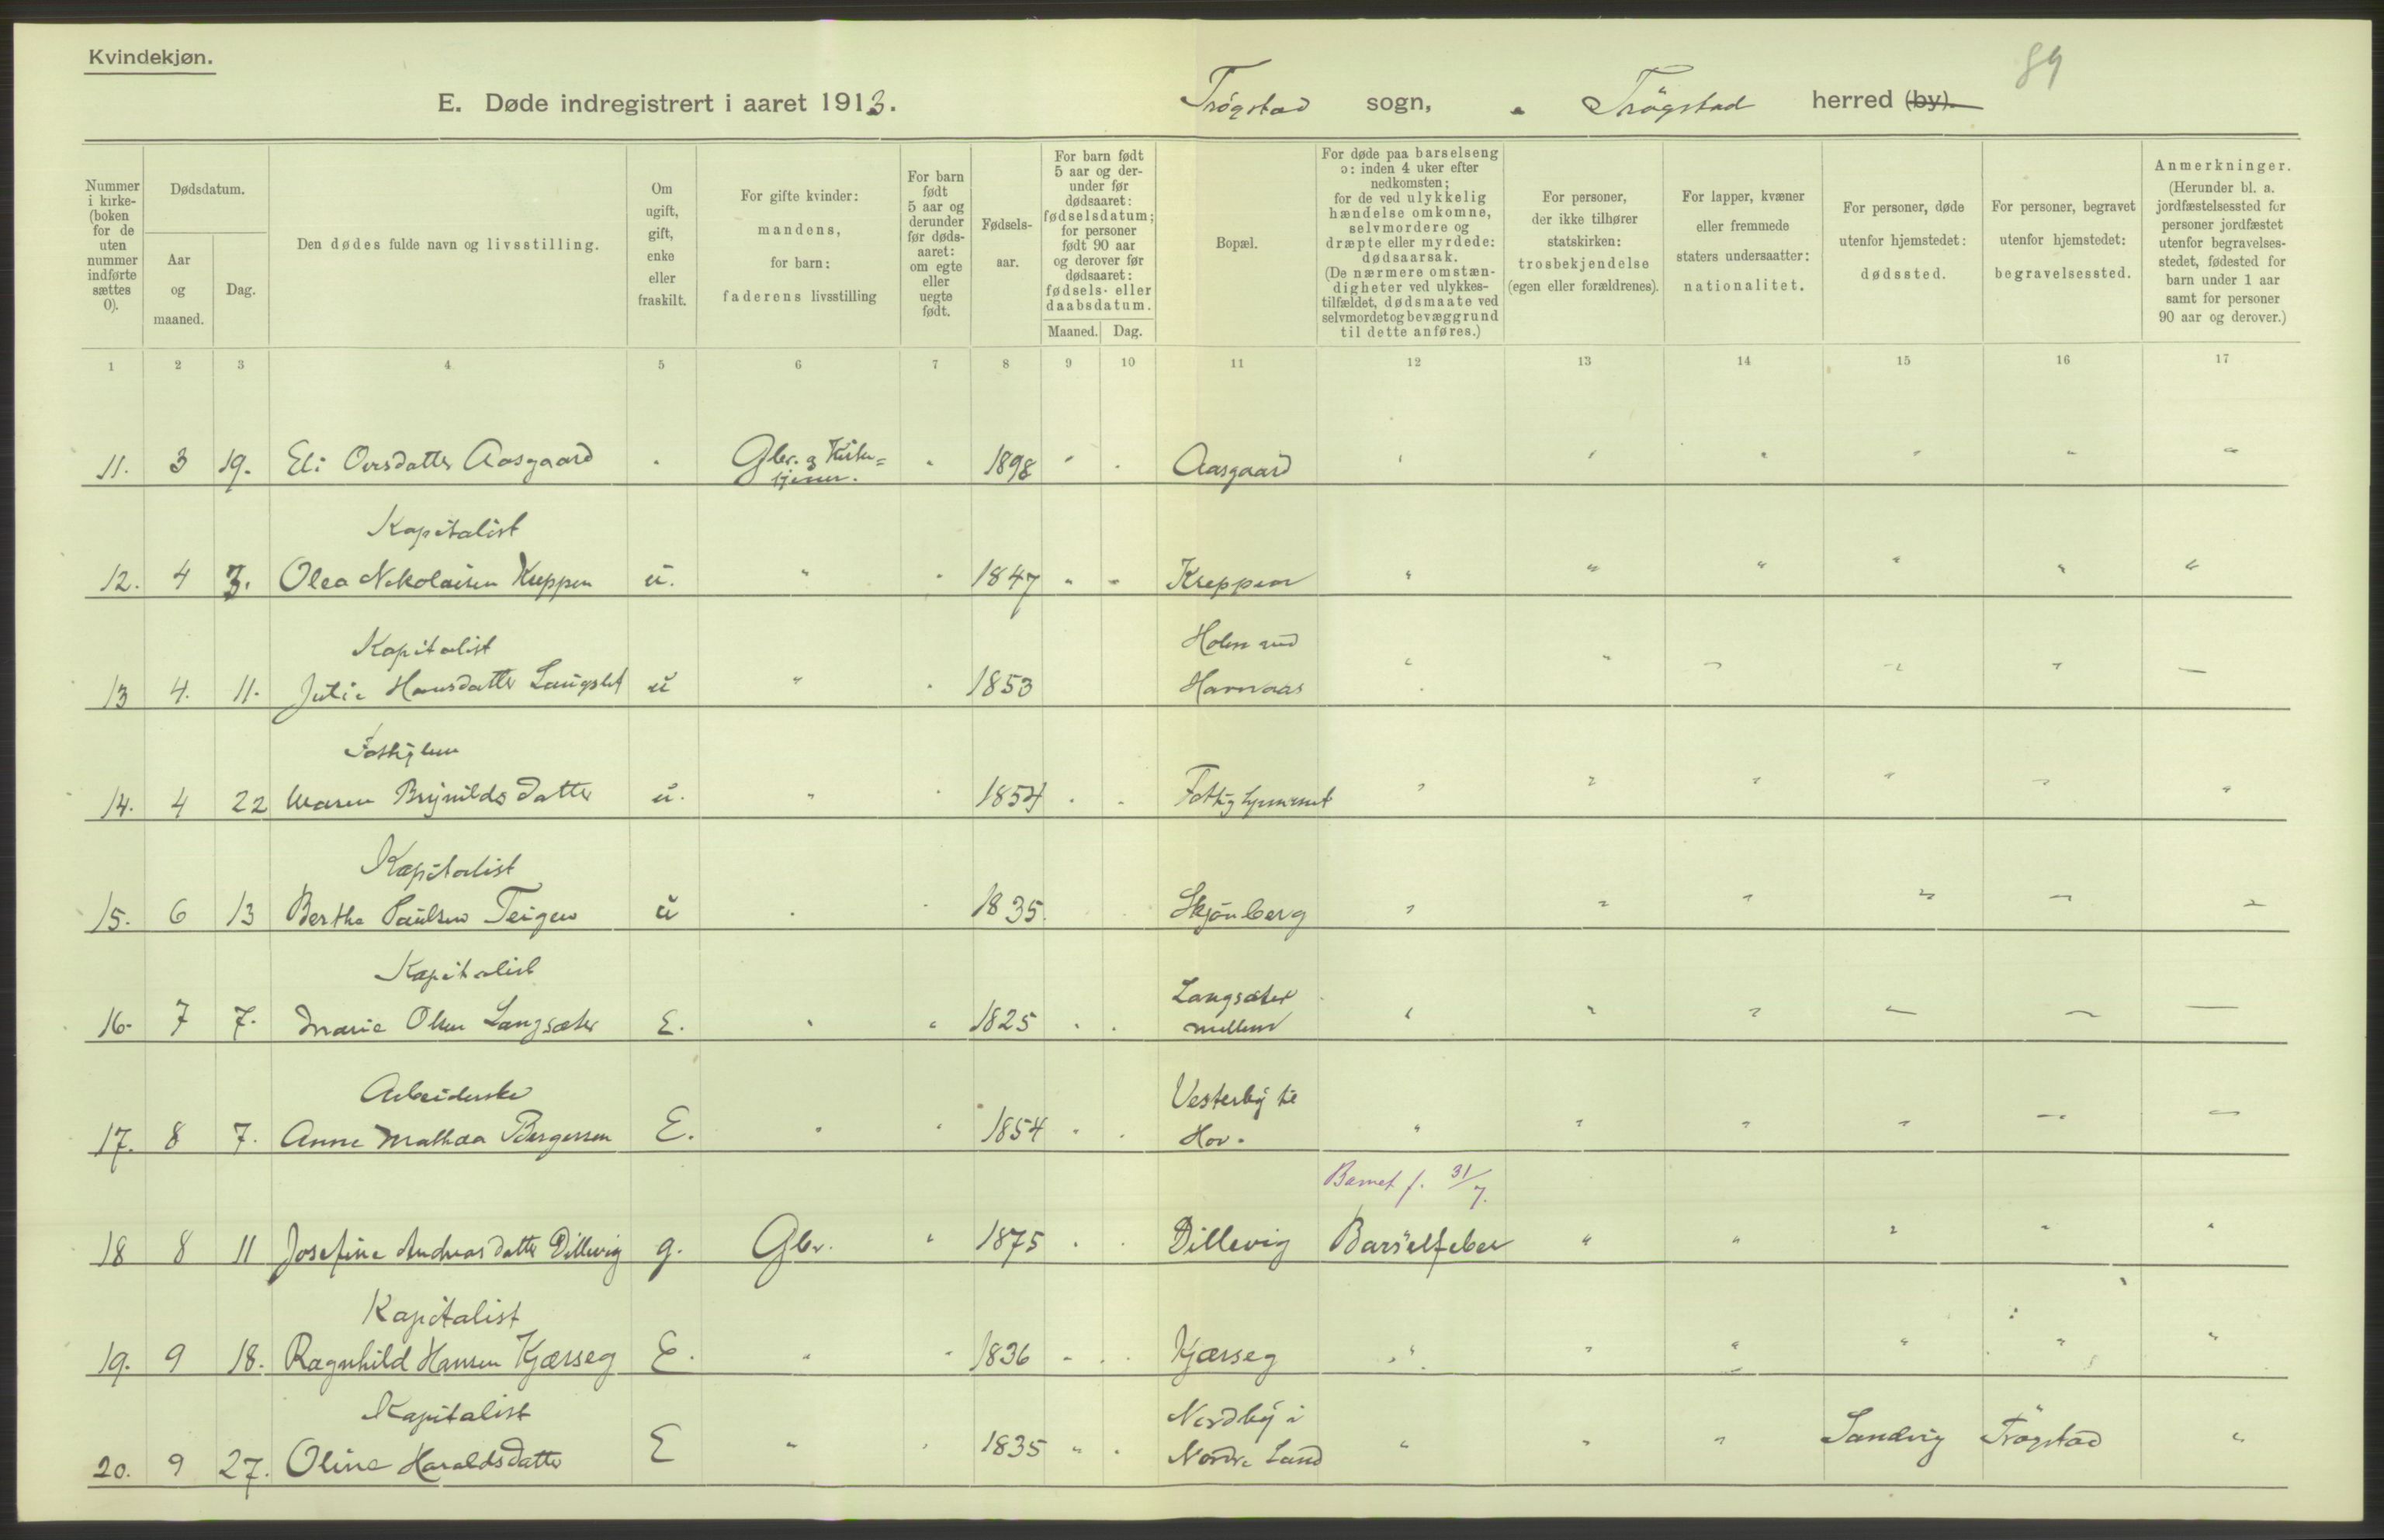 Kvindekjøn.
89
E. Døde indregistrert i aaret 1913. Trøgstad sogn, Trögstad herred (by).
Nummer i kirke- (boken for de uten nummer indførte sættes 0).
Dødsdatum.
Aar og maaned.
Dag.
Den dødes fulde navn og livsstilling.
Om ugift, gift, enke eller fraskilt.
For gifte kvinder: mandens, for barn: faderens livsstilling
For barn født 5 aar og derunder før døds- aaret: om egte eller uegte født.
Fødsels- aar.
For barn født 5 aar og der- under før dødsaaret: fødselsdatum; for personer født 90 aar og derover før dødsaaret: fødsels- eller daabsdatum.
Maaned. Dag.
Bopæl.
For døde paa barselseng ɔ: inden 4 uker efter nedkomsten; for de ved ulykkelig hændelse omkomne, selvmordere og dræpte eller myrdede: dødsaarsak. (De nærmere omstæn- digheter ved ulykkes- tilfældet, dødsmaate ved selvmordet og bevæggrund til dette anføres.)
For personer, der ikke tilhører statskirken: trosbekjendelse (egen eller forældrenes).
For lapper, kvæner eller fremmede staters undersaatter: nationalitet.
For personer, døde utenfor hjemstedet: dødssted.
For personer, begravet utenfor hjemstedet: begravelsessted.
Anmerkninger. (Herunder bl. a. jordfæstelsessted for personer jordfæstet utenfor begravelses- stedet, fødested for barn under 1 aar samt for personer 90 aar og derover.)
1 2 3 4 5 6 7 8 9 10 11 12 13 14 15 16 17
11. 3 19. Eli Aasgaard Gbr. 1898 Aasgaard
Kapitalist
12. 4 3. Olea Nikolaisen Kreppen u. " 1847 Kreppen
Kapitalist
13 4. 11. Julie Hansdatter Langslet u " 1853 Havnaas
14. 4 22 Maren Brynilds datter u. " 1854
Kapitalist
15. 6 13 Berthe Paulsen Teigen u 1835. Skjønberg
Kapitalist
16. 7 7. Marie Olsen Langsæter E. 1825 Langsæter mellem
Arbeiderske
17. 8 7. Anne Mathea Bergersen E. 1854 Vesterby til Hov.
Barnet f. 31/7.
18 8 11 Josefine Andreasdatter Dillevig g. Gbr. 1875 Dillevig Barselfeber
Kapitalist
19. 9 18. Ragnhild Hansen Kjærseg E. 1836 Kjærseg
Kapitalist
20. 9 27. Oline Haraldsdatter E 1835 Nordby i Nordre Land Sandvig Trögstad